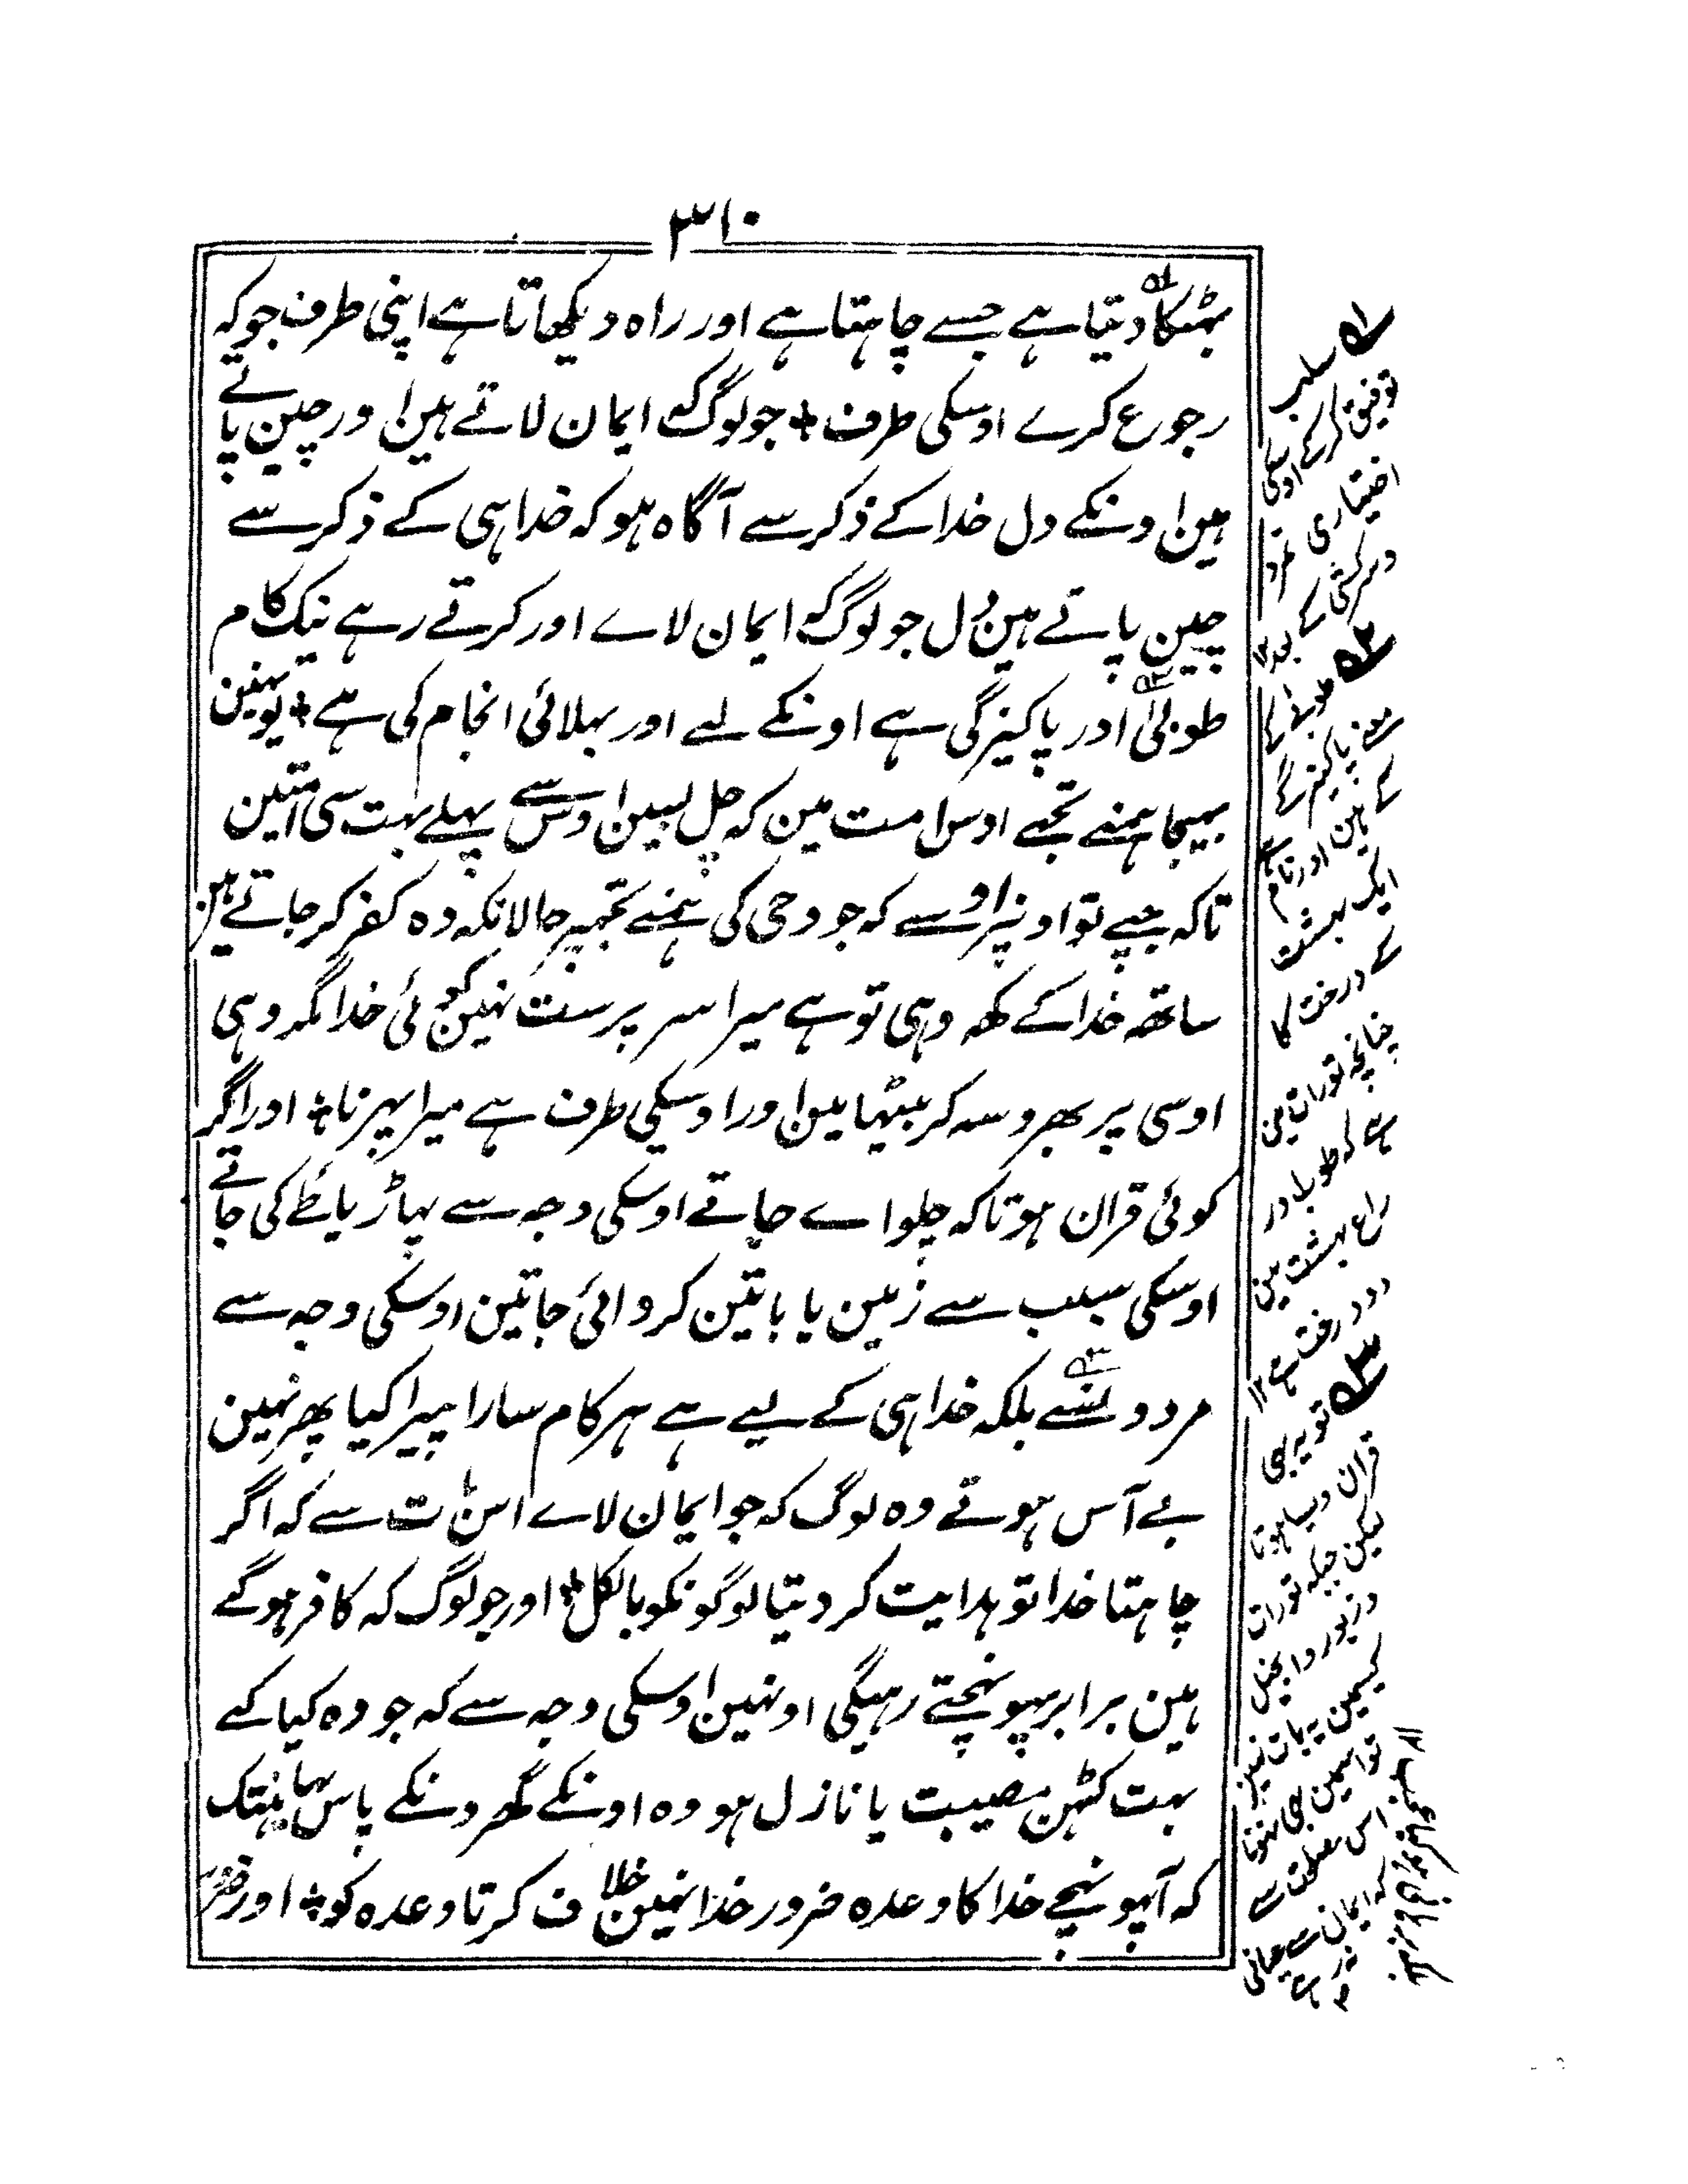 ۳۱۰
بہٹکا دیتا ہے جسے چاہتا ہے اور راہ دیکھاتا ہے اپنی طرف جو کہ
رجوع کرے اوسکی طرف جو لوگ کہ ایمان لاتے ہین اور چین پاتے
ہین اونکے دل خدا کے ذکر سے آگاہ ہو کہ خدا ہی کے ذکر سے
چین پاتے ہین دل جو لوگ کہ ایمان لاے اور کرتے رہے نیک کام
طوبیٰ اور پاکیزگی ہے اونکے لیے اور بہلائی انجام کی ہے یوہنین
بہیجا ہمنے تجہے اوس امت مین کہ چل بسین اوس سے پہلے بہت سی امتین
تاکہ جپے تو اونپر اوسے کہ جو وحی کی ہمنے تجہپر حالانکہ وہ کفر کر جاتے ہین
ساتھہ خدا کے کہہ وہی تو ہے میرا سر پرست نہین کوئی خدا مگر وہی
اوسی پر بھروسہ کر بیٹہا مین اور اوسیکی طرف ہے میرا پہرنا اور اگر
کوئی قران ہوتا کہ چلواے جاتے اوسکی وجہ سے پہاڑ یا طے کی جاتے
اوسکی سبب سے زمین یا باتین کروائی جاتین اوسکی وجہ سے
مردونسے بلکہ خدا ہی کے لیے ہے ہر کام سارا پیرا کیا پھر نہین
بے آس ہوتے وہ لوگ کہ جو ایمان لاے اس بات سے کہ اگر
چاہتا خدا تو ہدایت کر دیتا لوگونکو بالکل اور جو لوگ کہ کافر ہو گے
ہین برابر پہونچتے رہیگی اونہین اوسکی وجہ سے کہ جو وہ کیا کے
بہت کٹہن مصیبت یا نازل ہو وہ اونکے گھرونکے پاس یہانتک
کہ آپہونچے خدا کا وعدہ ضرور خدا نہین خلاف کرتا وعدہ کو اور
توفیق کرکے اوسکی
اختیاری
طوبےٰ کے
معنے پاکیزگے
کے ہین اور نام ہے
ایک بہشت
کے درخت کا
چنانچہ تورات مین
ہے کہ طوبیٰ در
بہشت مین
درخت ہے ۱۲
تو یہ بھی
قران ویسا ہوتا
لیکن جبکہ تورات
و زبور و انجیل
یہ بات نہین
تو اسمین بھی نہین
اس مصلحت سے
کہ ایمان